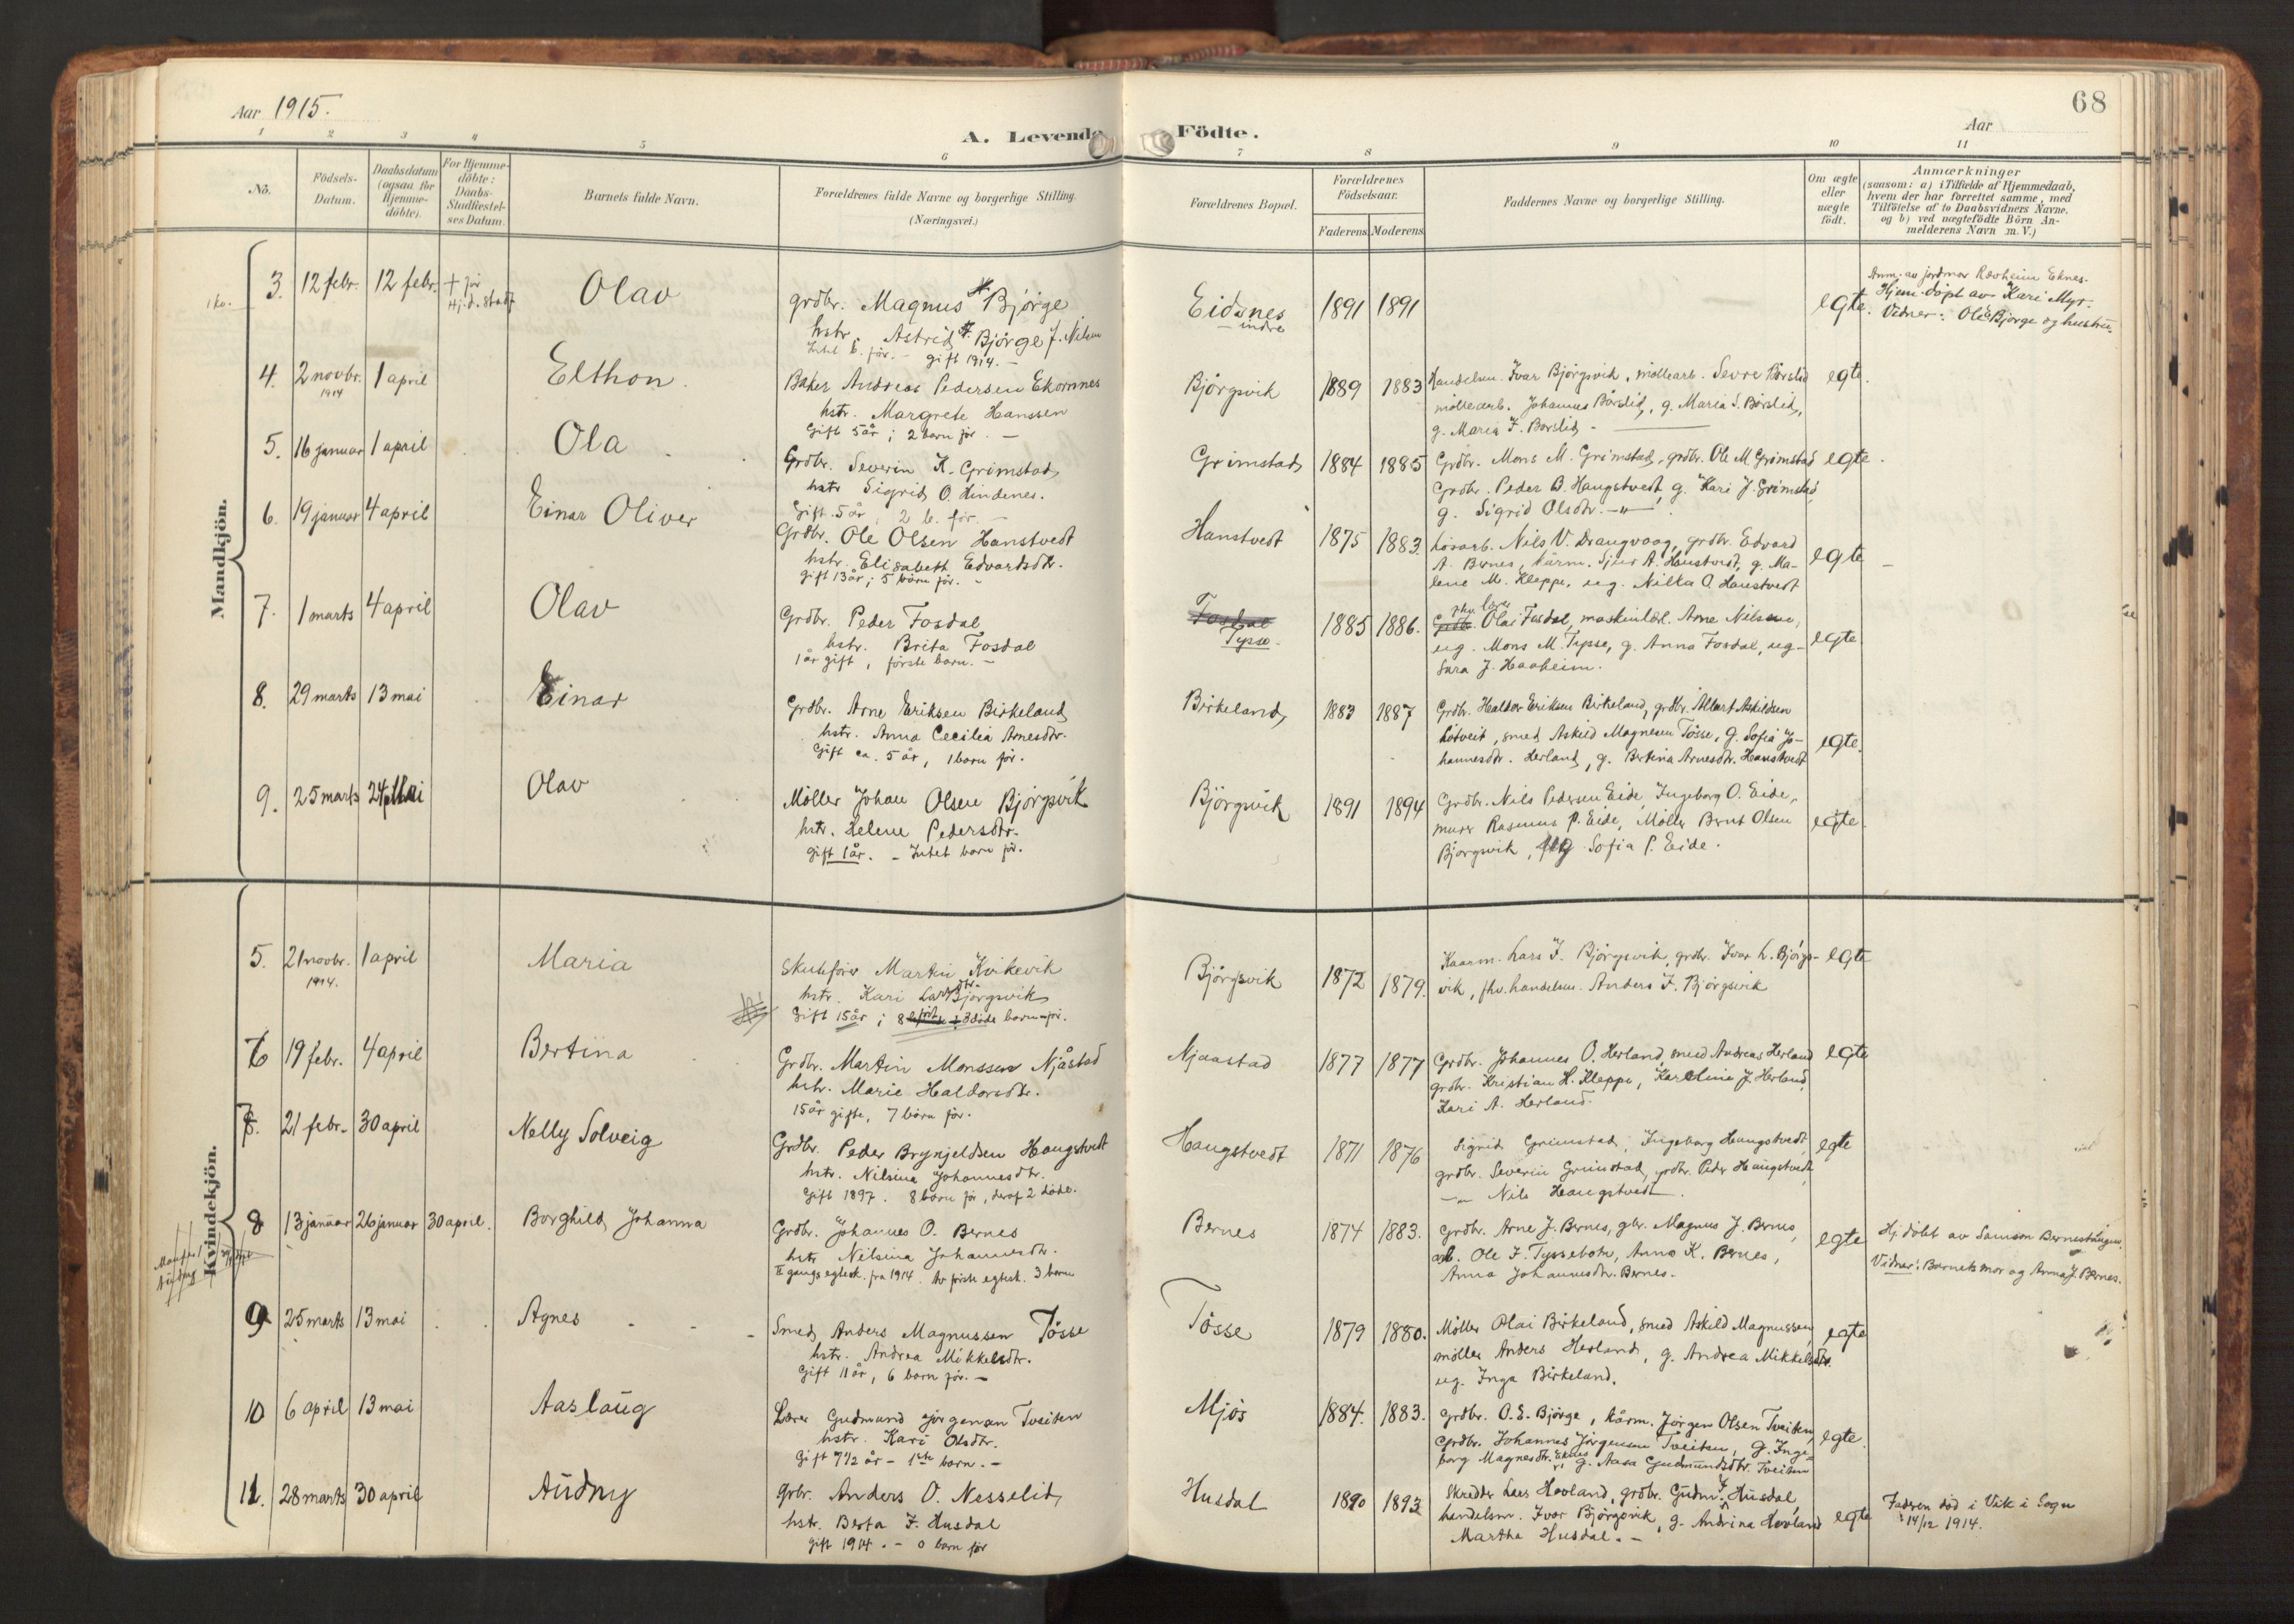 Aar 1915.
A. Levende Födte.
Aar
68
1 2 3 4 5 6 7 8 9 10 11
No.
Födsels-Datum.
Daabsdatum (ogsaa for Hjemme-döbte).
For Hjemme-döbte: Daabs-Stadfæstel-ses Datum.
Barnets fulde Navn.
Forældrenes fulde Navne og borgerlige Stilling.
(Næringsvei.)
Forældrenes Bopæl.
Forældrenes Födselsaar.
Faderens. Moderens.
Faddernes Navne og borgerlige Stilling.
Om ægte eller uægte födt.
Anmærkninger
(saasom: a) i Tilfælde af Hjemmedaab,
hvem der har forrettet samme, med
Tilföielse af to Daabsvidners Navne,
og b) ved uægtefödte Börn An-
melderens Navn m. V.)
Mandkjön.
3. 12 febr. 12 febr. + før Hj.d. stadf. Olav
grdbr. Magnus Bjørge
hstr. Astrid Bjørge f. Nilsen
Intet b. før. - gift 1914. -
Eidsnes indre 1891 1891 egte.
Anm. av jordmor Ravheim Eknes.
Hjem. døpt av Kari Myr.
Vidner: Ole Bjørge og hustru.
4. 2 novbr. 1914 1 april Elthon.
Baker Andreas Pedersen Ekornnes
hstr. Margrete Hanssen
Gift 5 år; 2 barn før. -
Bjørgsvik 1889 1883
Handelsm. Ivar Bjørgsvik, møllearb. Sevre Børslid
møllearb. Johannes Børslid, g. Maria S. Børslid,
g. Maria J. Børslid -
egte.
5. 16 januar 1 april Ola
Grdbr. Severin K. Grimstad
hstr Sigrid O. Hindenes.
Gift 5 år, 2 b. før. -
Grimstad 1884 1885
Grdbr. Mons M. Grimstad, grdbr. Ole M Grimstad
Grdbr. Peder B. Haugstvedt, g. Kari J. Grimstad,
g. Sigrid Olsdtr. -"-
egte.
6. 19 januar 4 april Einar Oliver
Grdbr. Ole Olsen Hanstvedt
hstr. Elisabeth Edvardsdtr.
gift 13 år; 5 barn før. -
Hanstvedt 1875 1883.
løsarb. Nils V. Drangvaag, grdbr. Edvard
A. Bernes, kårm. Sjur A. Hanstvedt, g. Ma-
lene M. Kleppe, ug. Nilka O. Hanstvedt
egte
7. 1 marts 4 april Olav
Grdbr. Peder Fosdal
hstr. Brita Fosdal
1 år gift, første barn. -
Fosdal
Tysse. 1885 1886.
Olai Fosdal, maskinlærl. Arne Nilsen,
ug. Mons M. Tysse, g. Anna Fosdal, ug-
Sara J. Haaheim.
egte.
8. 29 marts 13 mai Einar
Grdbr. Arne Eriksen Birkeland
hstr. Anna Cecilia Arnesdtr.
Gift ca. 5 år, 1 barn før.
Birkeland 1883 1887
Grdbr. Haldor Eriksen Birkeland, grdbr. Albert Askildsen
Løtveit, smed Askild Magnesen Tösse, g. Sofia Jo-
hannesdtr. Herland, g. Bertina Arnesdtr. Hanstvedt
egte.
9. 25 marts 24 Mai Olav
Möller Johan Olsen Bjørgsvik
hstr. Helene Pedersdtr.
gift 1 år. - Intet barn før.
Bjørgsvik 1891 1894
Grdbr. Nils Pedersen Eide, Ingeborg O. Eide,
murer Rasmus P. Eide, Möller Bernt Olsen
Bjørgsvik, ug Sofia P. Eide.
egte.
Kvindekjön.
5. 21 novbr. 1914. 1 april Maria
Skuleförer Martin Kvikevik
hstr. Kari Larsdtr. Bjørgsvik
Gift 15 år; 8 barn før.
Bjørgsvik 1872 1879.
Kaarm. Lars J. Bjørgsvik, grdbr. Ivar L. Bjørgs-
vik, fhv. handelsm. Anders J. Bjørgsvik
egte
6 19 febr. 4 april Bertina
Grdbr. Martin Monssen Njåstad
hstr. Marie Haldorsdtr.
15 år gifte, 7 barn før.
Njaastad 1877 1877
Grdbr. Johannes O. Herland, smed Andreas Herland
grdbr. Kristian H. Kleppe, Karolina J. Herland,
Kari A. Herland.
egte
7. 21 febr. 30 april Nelly Solveig
Grdbr. Peder Brynjeldsen Haugstvedt
hstr. Nilsina Johannesdtr.
Gift 1897. 8 barn før, deraf 2 døde.
Haugstvedt 1871 1876
Sigrid Grimstad, Ingeborg Haugstvedt,
grdbr. Severin Grimstad, grdbr. Peder Haugstvedt
-"- Nils Haugstvedt.
egte
8 13 januar 26 januar 30 april. Borghild Johanna
Grdbr. Johannes O. Bernes
hstr Nilsina Johannesdtr.
II gangs egtesk. fra 1914. Av første egtesk. 3 barn
Bernes 1874 1883.
Grdbr. Arne J. Bernes, gbr. Magnus J. Bernes,
arb. Ole J. Tyssebotn, Anna K. Bernes,
Anna Johannesdtr. Bernes.
egte
Hj. døbt av Samson Bernestangen.
Vidner: Barnets mor og Anna J. Bernes.
9 25 marts 13 mai Agnes
Smed Anders Magnussen Tösse
hstr. Andrea Mikkelsdtr.
Gift 11 år, 6 barn før. -
Tösse 1879 1880.
Möller Olai Birkeland, smed Askild Magnussen
møller Anders Herland, g. Andrea Mikkelsdtr.
ug. Inga Birkeland.
egte
10 6 april 13 mai Aaslaug
Lærer Gudmund Jørgensen Tveiten
hstr. Kari Olsdtr.
Gift 7 1/2 år - 1ste barn. -
Mjøs 1884. 1883.
Grdbr. O. E. Bjørge, kårm. Jørgen Olsen Tveiten,
Grdbr. Johannes Jørgensen Tveiten, g. Inge-
borg Magnesdtr. Eknes, g. Aasa Gudmundsdtr. Tveiten
egte.
11. 28 marts 30 april Audny
Grbr. Anders O. Nesselid
hstr. Berta J. Husdal
gift 1914. - 0 barn før
Husdal 1890 1893
Skredder Lars Hovland, grdbr. Gudm. J. Husdal,
handelsm. Ivar Bjørgsvik, g. Andrina Hovland
Martha Husdal. -
egte
Faderen død i Vik i Sogn
14/12 1914.